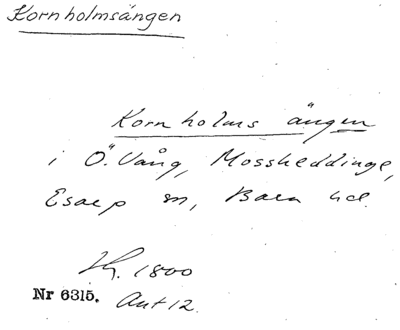 Kornholmsängen
Kornholms ängen
i Ö. Vång, Mossheddinge,
Esarp sn, Bara hd.
1800
Nr 6315. Akt 12.